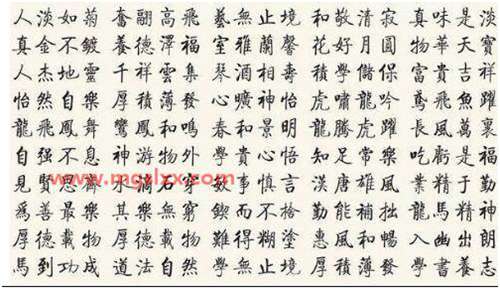 人淡如菊 奮翮高飛 藝無止境 和敬清寂 真味是淡
真金不鍍 養德澤福 室雅蘭馨 花好月圓 物華天寶
人杰地靈 千祥雲集 琴酒相壽 積學儲保 富貴吉祥
怡然自樂 厚積薄發 心曠神怡 虎嘯龍吟 鳶飛魚躍
龍飛鳳舞 鸞鳳和鳴 春和景明 龍騰虎躍 長風萬裏
自强不息 神游物外 學貴心悟 知足常樂 吃虧是福
見賢思齊 水滴石穿 敏事慎言 漢唐雄風 業精于勤
www.mgalzx.com
為善最樂 其樂無窮 鍥而不捨 勤能補拙 龍馬精神
厚德載物 厚德載物 難得糊塗 惠風和暢 入幽出朗
馬到功成 道法自然 學無止境 厚積薄發 學書養志